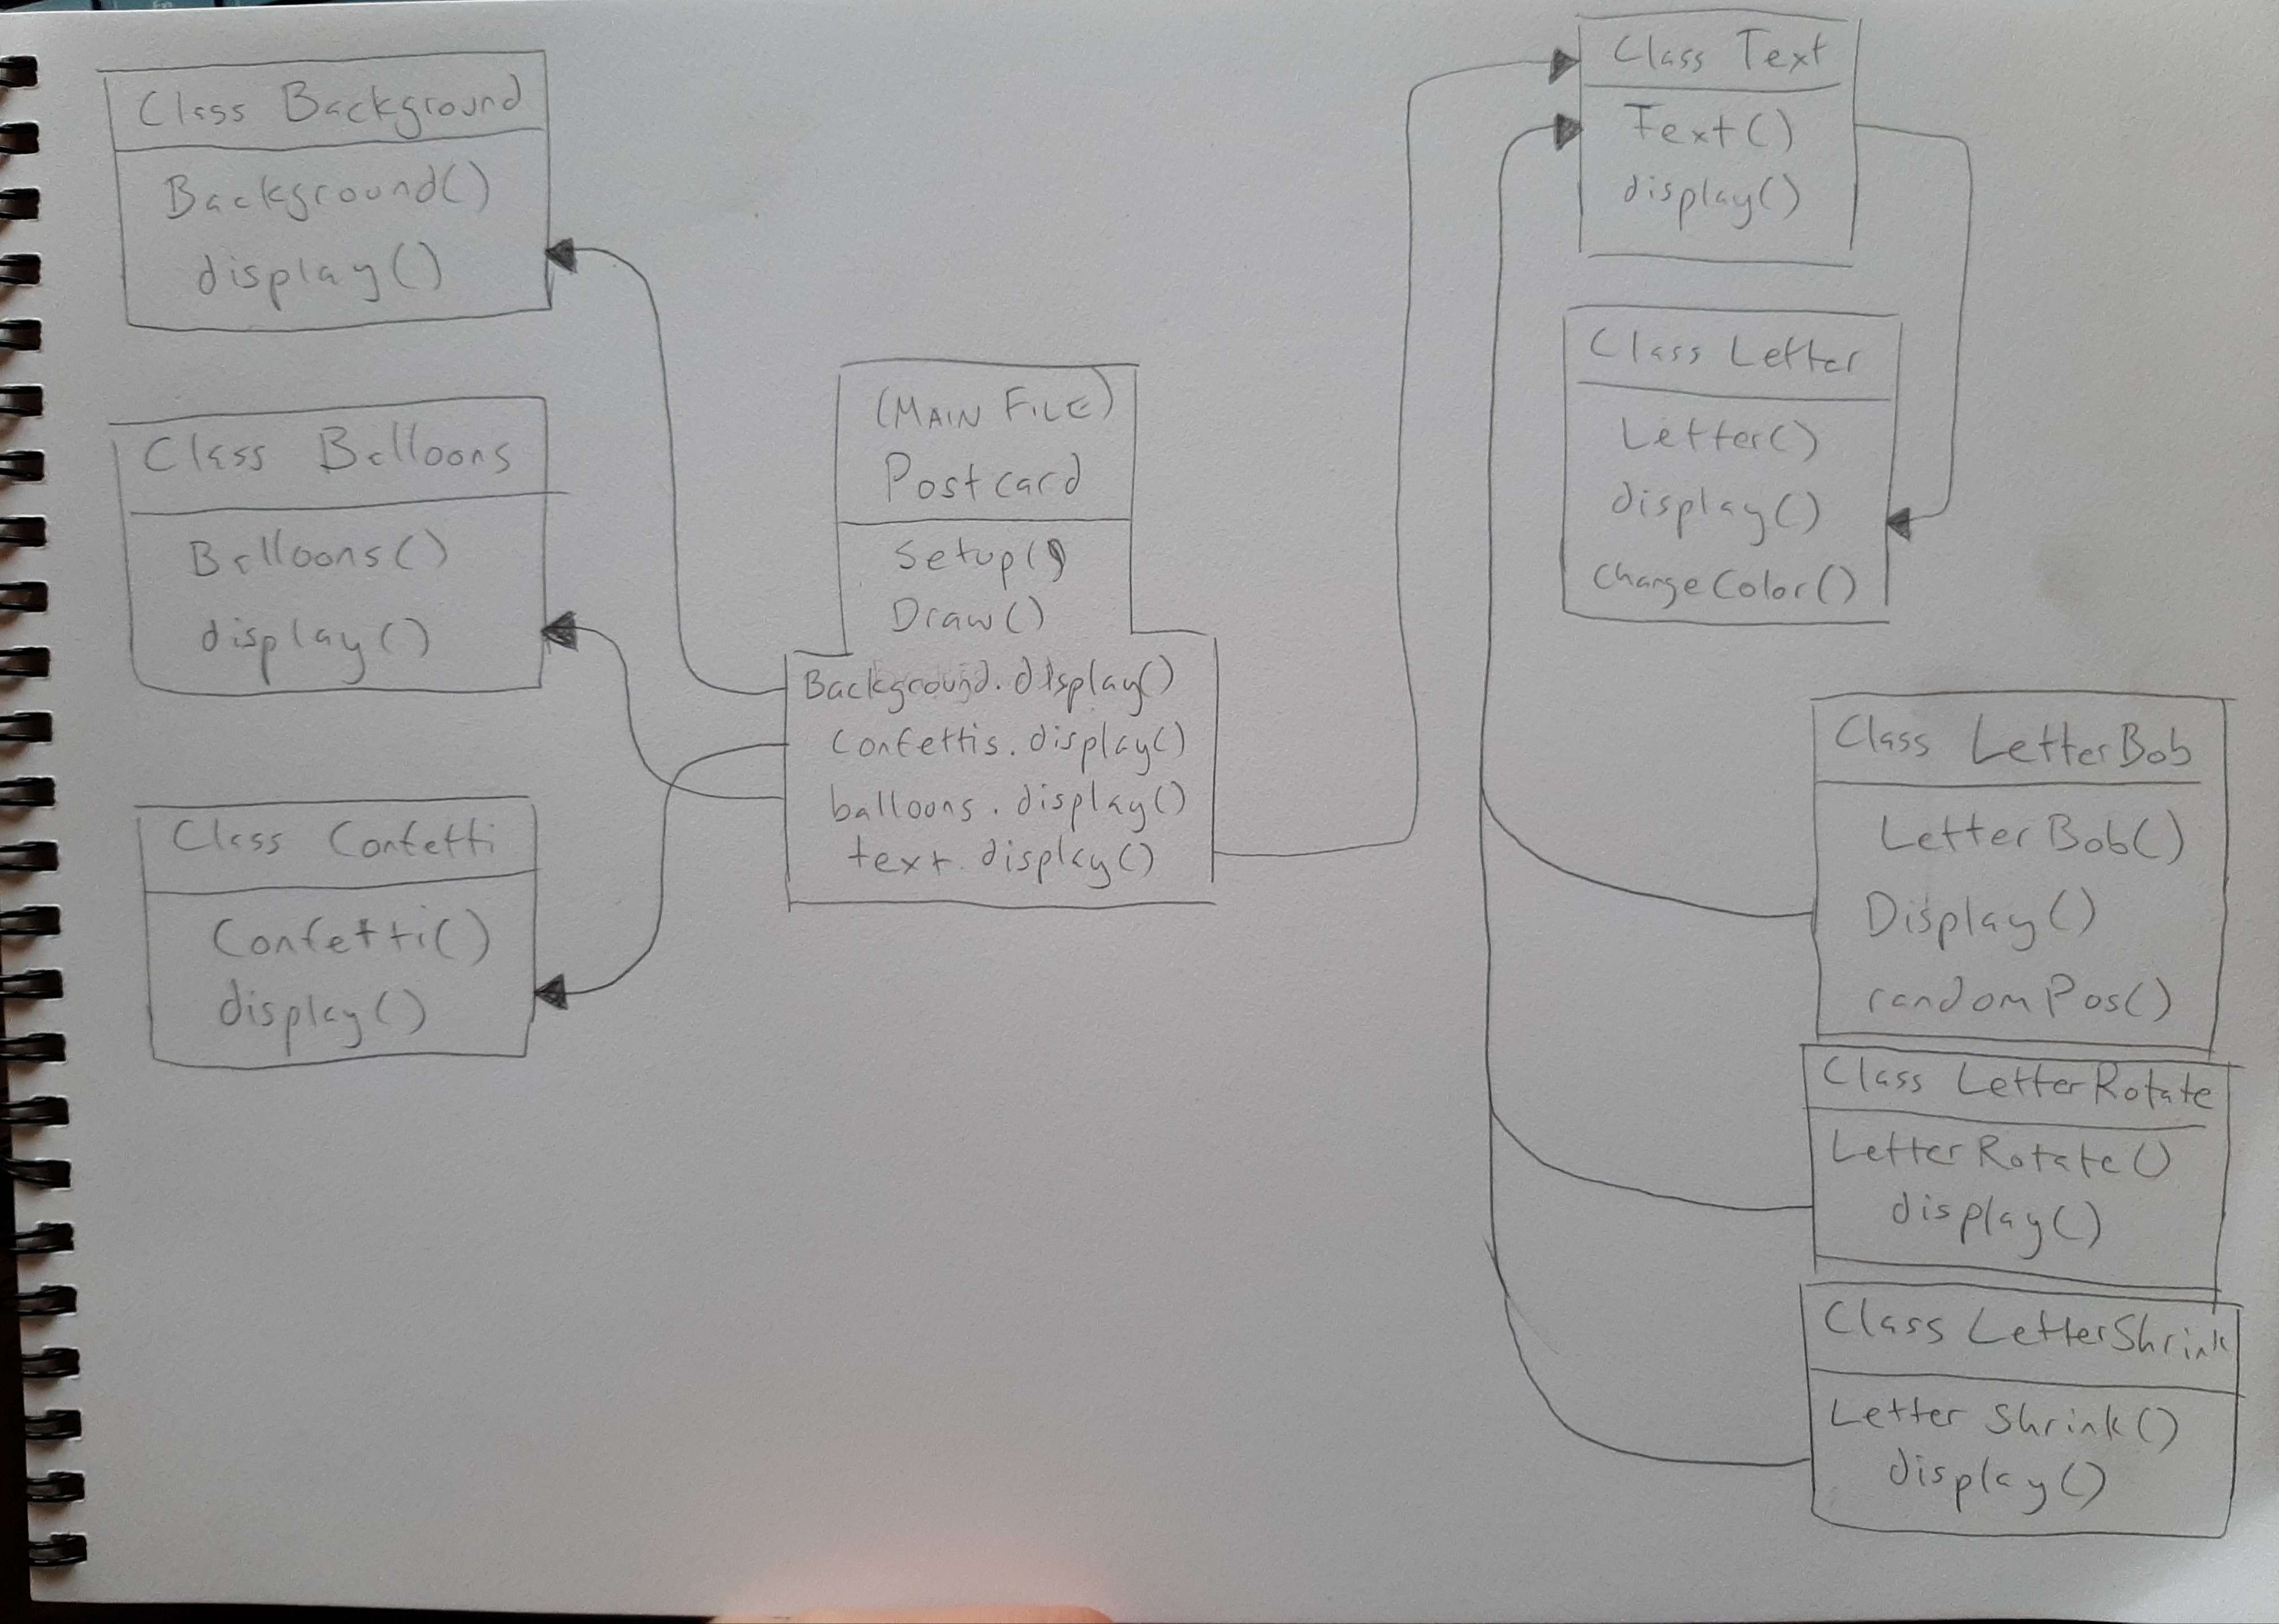 Class Background
Background()
display()
Class Balloons
Balloons()
display()
Class Confetti
Confetti()
display()
(MAIN FILE)
Postcard
Setup()
Draw()
Background.display()
Confettis.display()
balloons.display()
text.display()
Class Text
Text()
display()
Class Letter
Letter()
display()
changeColor()
Class LetterBob
LetterBob()
Display()
randomPos()
Class LetterRotate
LetterRotate()
display()
Class LetterShrink
Letter Shrink()
display()